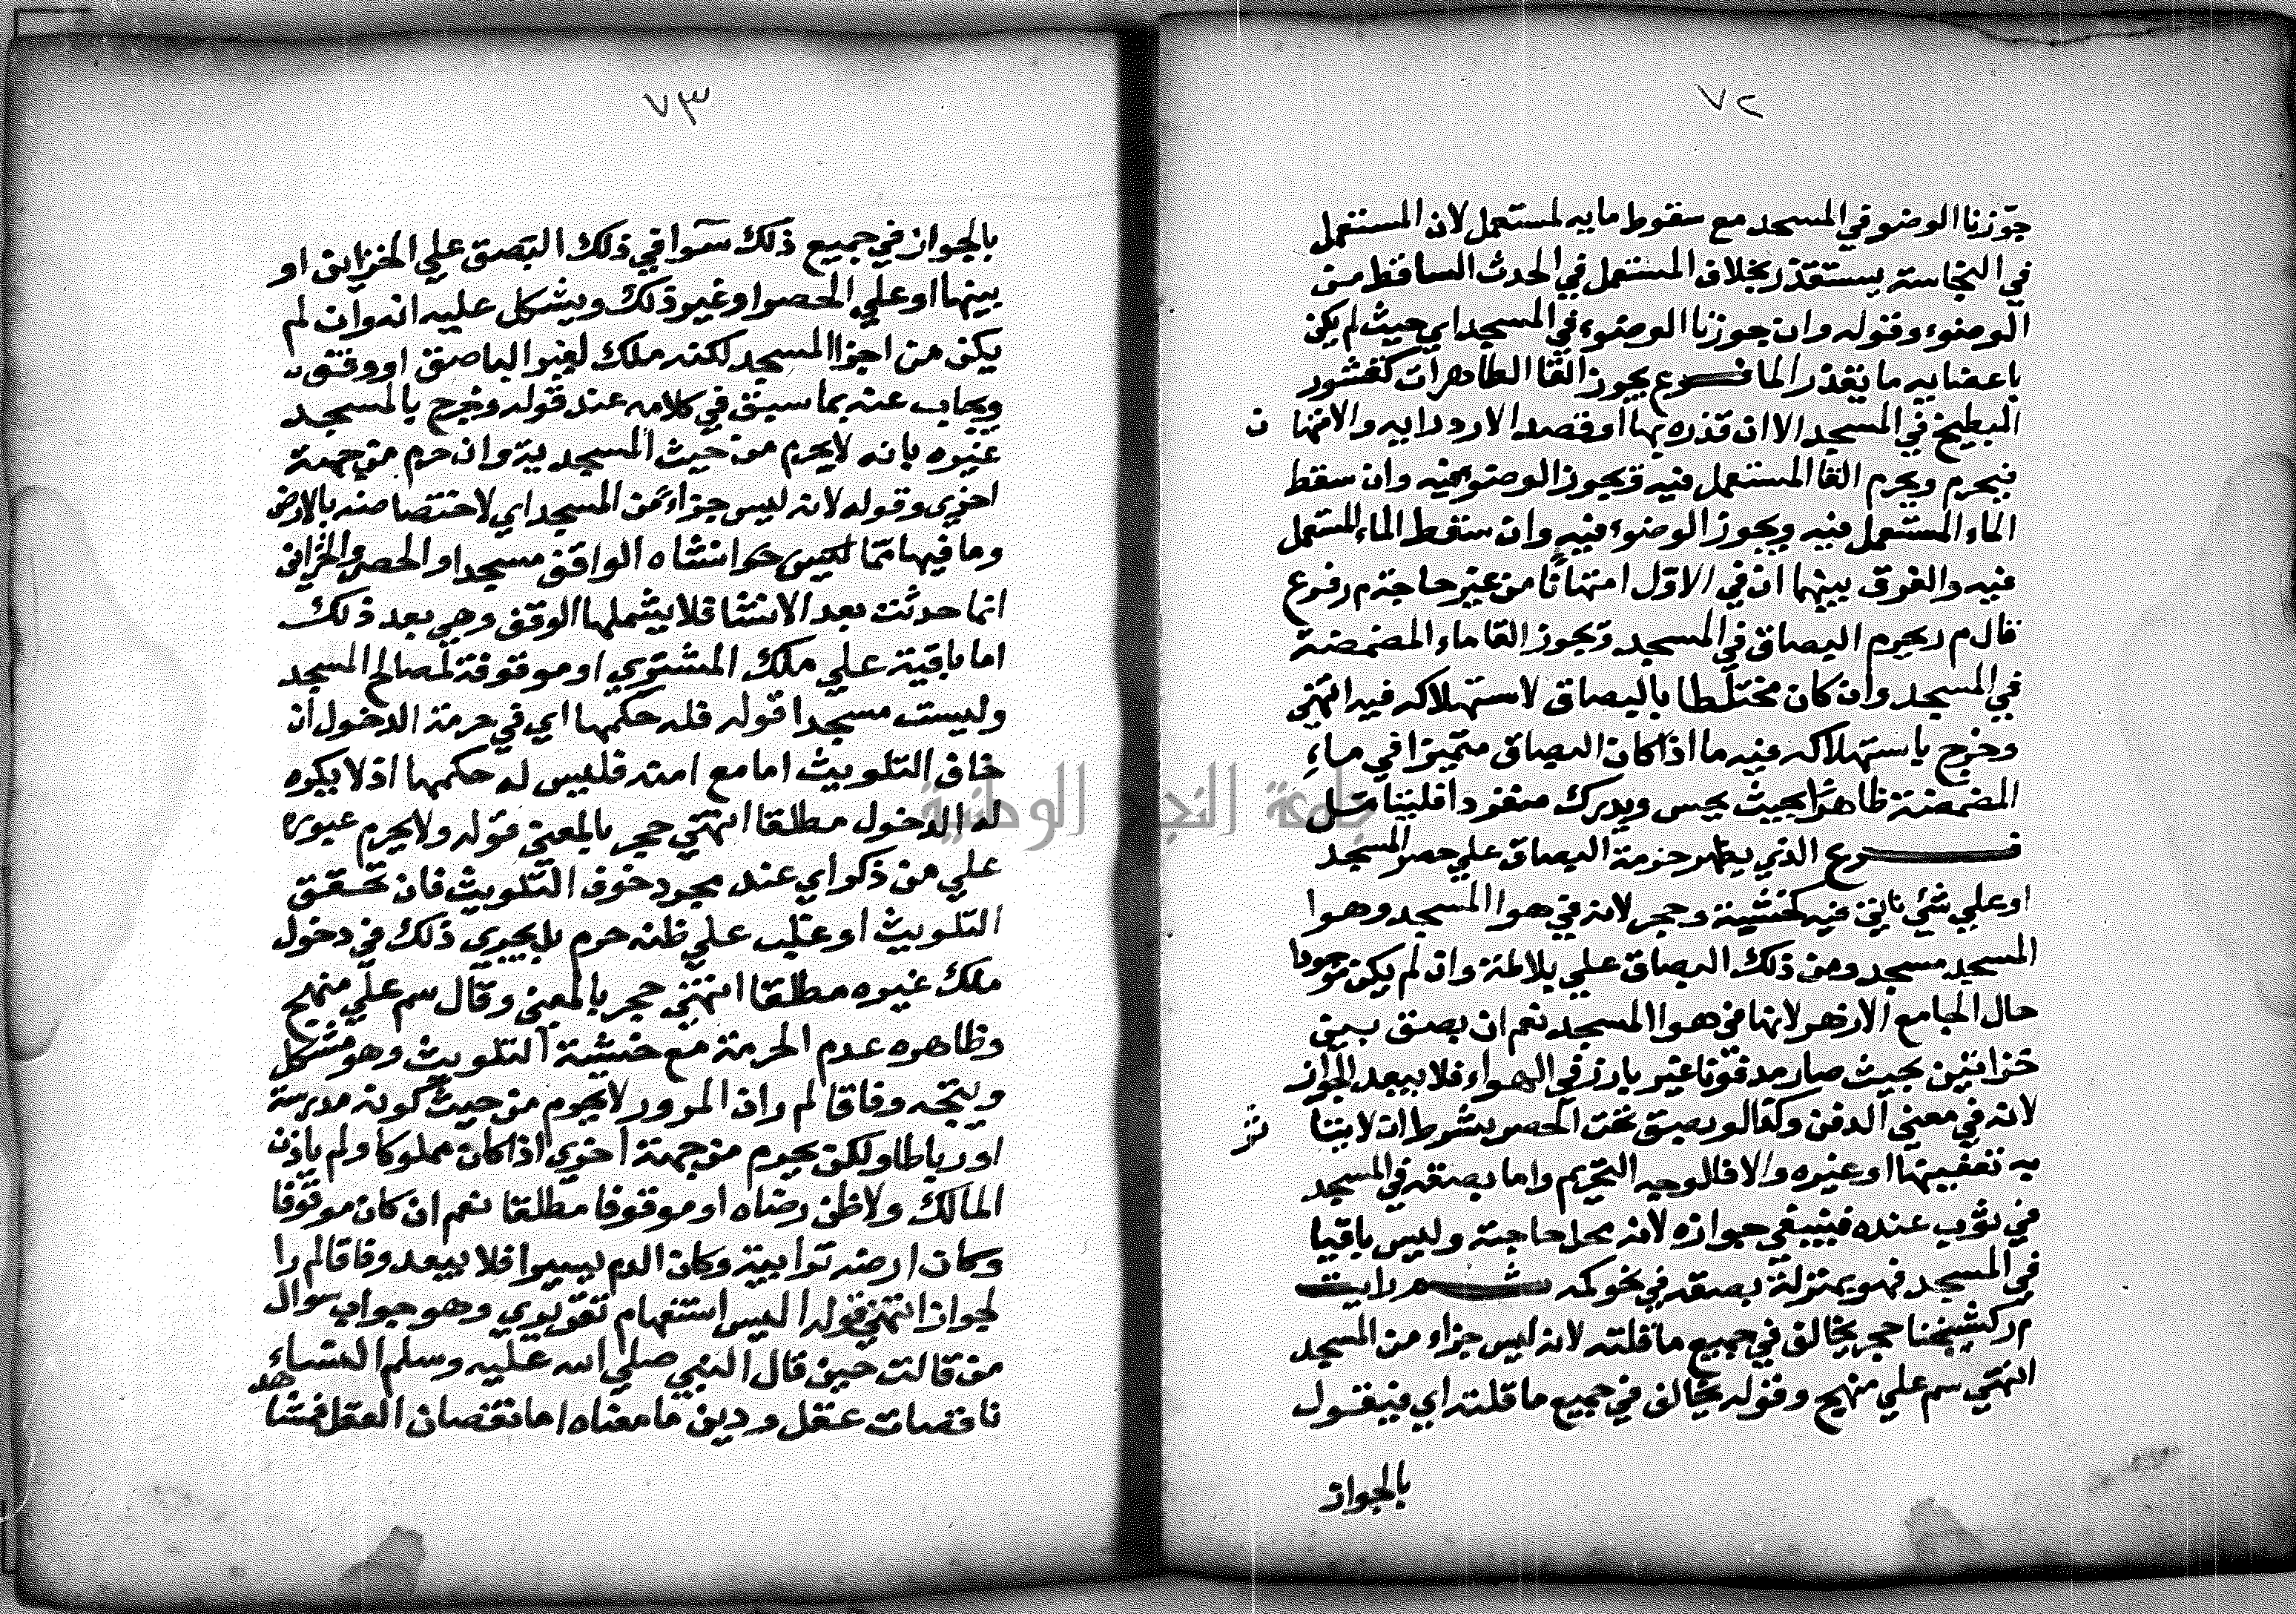 ٧٢
جوّزنا الوضو في المسجد مع سقوط مايه لمستعمل لان المستعمل
في النجاسة يستقذر بخلاف المستعمل في الحدث الساقط من
الوضوء وقوله وان جوزنا الوضوء في المسجد اي حيث لم يكن
باعضايه ما يقذر الما فرع يجوز القا الطاهرات كقشور
البطيخ في المسجد الا ان قذره بها او قصد الازدرا به والامتهان
فيحرم ويحرم القا المستعمل فيه ويجوز الوضو فيه وان سقط
الماء المستعمل فيه ويجوز الوضوء فيه وان سقط الماء المستعمل
فيه والفرق بينهما ان في الاول امتهانًا من غير حاجة م ر فرع
قال م ر يحرم البصاق في المسجد ويجوز القا ماء المضمضة
في المسجد وان كان مختلطا بالبصاق لاستهلاكه فيه انتهى
وخرج باستهلاكه فيه ما اذا كان البصاق متميزا في ماءِ
المضمضة ظاهرًا بحيث يحس ويدرك منفردا فليتامل
فرع الذي يظهر حرمة البصاق علي حصر المسجد
او علي شي ناتئ فيه كخشبة وحجر لانه في هوا المسجد وهوا
المسجد مسجد ومن ذلك البصاق علي بلاطة وان لم يكن موجودا
حال الجامع الازهر لانها في هوا المسجد نعم ان بصق بين
خزانتين بحيث صار مدفونا غير بارز في الهواء فلا يبعد الجواز
لانه في معني الدفن وكذا لو بصق تحت الحصر بشرط ان لا يتاثر
به تعفينها او غيره والا فالوجه التحريم واما بصقه في المسجد
في ثوب عنده فينبغي جوازه لانه محل حاجة وليس باقيا
في المسجد فهو بمنزلة بصقه في نحو كمه ثم رايت
م ر كشيخنا حجر يخالف في جميع ما قلته لانه ليس جزاء من المسجد
انتهى سم علي منهج وقوله يخالف في جميع ما قلته اي فيقول
بالجواز
٧٣
بالجواز في جميع ذلك سوا في ذلك البصق علي الخزاين او
بينها او علي الحصر او غير ذلك ويشكل عليه انه وان لم
يكن من اجزا المسجد لكنه ملك لغير الباصق او وقف
ويجاب عنه بما سبق في كلامه عند قوله وخرج بالمسجد
غيره بانه لا يحرم من حيث المسجدية وان حرم من جهة
اخري وقوله لانه ليس جزاء من المسجد اي لاختصاصه بالارض
وما فيها مما ليس انشاه الواقف مسجدا والحصر والخزاين
انما حدثت بعد الانشا فلا يشملها الوقف وهي بعد ذلك
اما باقية علي ملك المشتري او موقوفة لمصالح المسجد
وليست مسجدا قوله فله حكمها اي في حرمة الدخول ان
خاف التلويث اما مع امنه فليس له حكمها اذ لا يكره
له الدخول مطلقا انتهى حجر بالمعني قوله ولا يحرم عبوره
علي من ذكر اي عند مجرد خوف التلويث فان تحقق
التلويث او غلب علي ظنه حرم بل يجري ذلك في دخول
ملك غيره مطلقا انتهى حجر بالمعني وقال سم علي منهج
وظاهره عدم الحرمة مع خشية التلويث وهو مشكل
ويتجه وفاقا لم ر ان المرور لا يحرم من حيث كونه مدرسة
او رباطا ولكن يحرم من جهة اخري اذا كان مملوكا ولم ياذن
المالك ولا ظن رضاه او موقوفا مطلقا نعم ان كان موقوفا
وكان ارضه ترابية وكان الدم يسيرا فلا يبعد وفاقا لم ر ا
لجواز انتهى قوله اليس استفهام تقريري وهو جواب سوال
من قالت حين قال النبي صلي الله عليه وسلم النساء
ناقصات عقل ودين ما معناه اما نقصان العقل فمشاهد